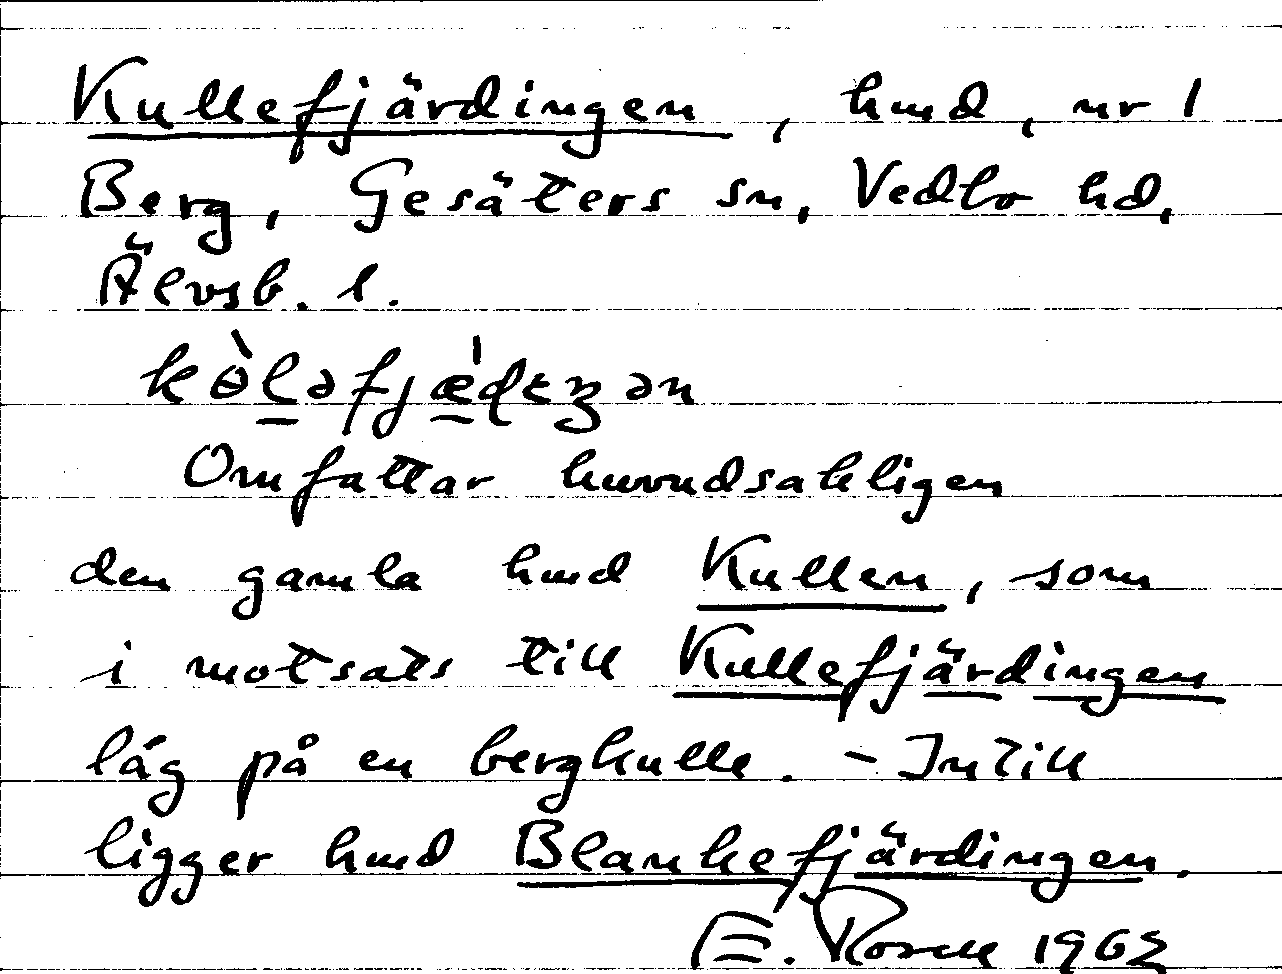 Kullefjärdingen, hmd, nr 1
Berg, Gesäters sn, Vedbo hd,
Älvsb. l.
Omfattar huvudsakligen
den gamla hmd Kullen, som
i motsats till Kullefjärdingen
låg på en bergkulle. - Intill
ligger hmd Blankefjärdingen.
E. 1962